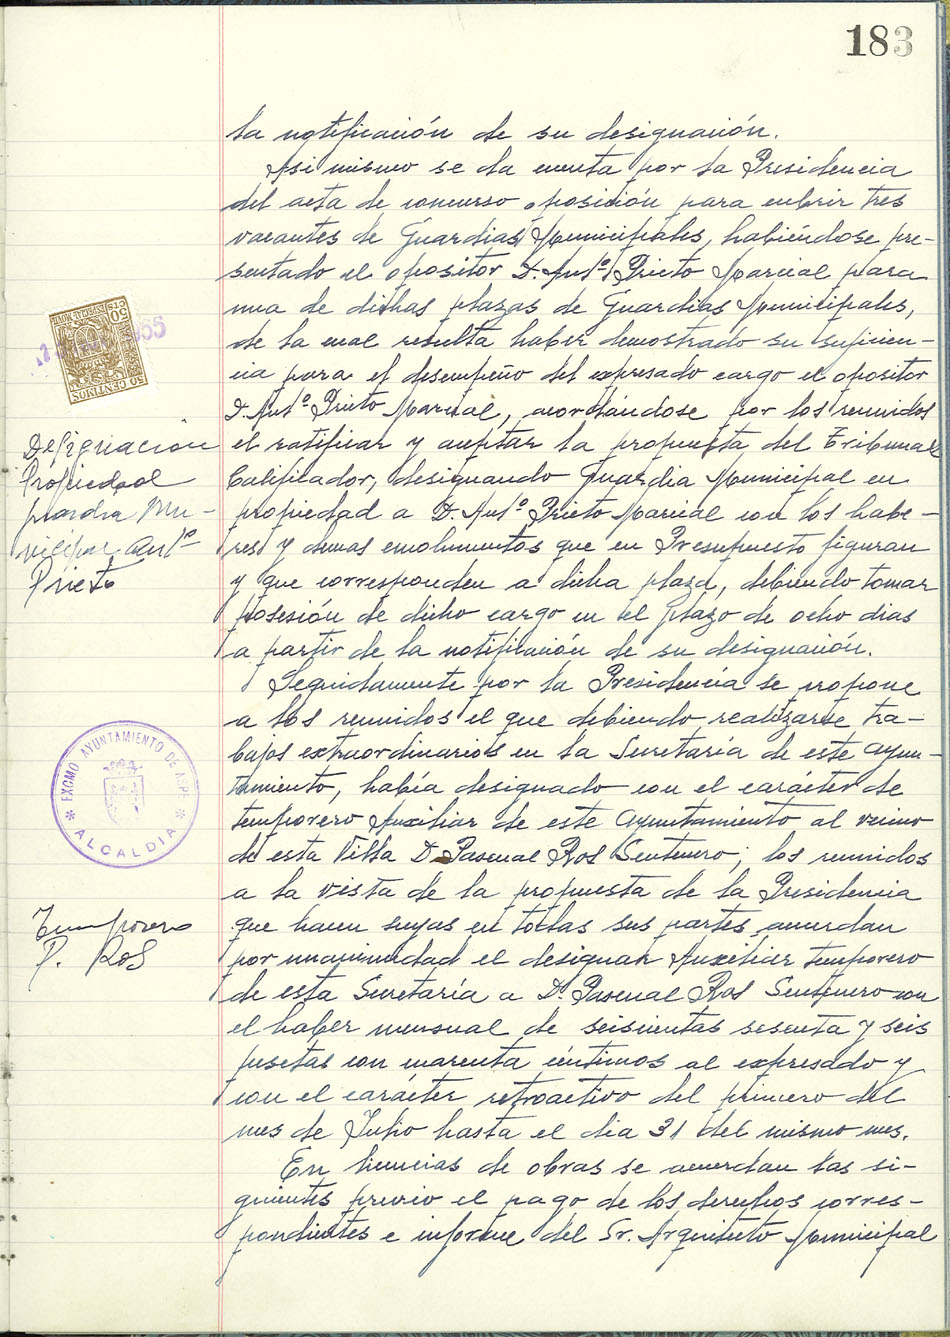 183
la notificación de su designación.
Asi mismo se da cuenta por la Presidencia
del acta de concurso oposición para cubrir tres
vacantes de Guardias Municipales, habiéndose pre-
sentado el opositor D. Antº Prieto Marcial para
una de dichas plazas de Guardias Municipales,
de la cual resulta haber demostrado su suficien-
cia para el desempeño del expresado cargo el opositor
D. Antº Prieto Marcial, acordándose por los reunidos
el ratificar y aceptar la propuesta del Tribunal
Calificador, designando Guardia Municipal en
propiedad a D. Antº Prieto Marcial con los habe-
res y demas emolumentos que en Presupuesto figuran
y que corresponden a dicha plaza, debiendo tomar
posesión de dicho cargo en el plazo de ocho dias
a partir de la notificación de su designación.
Seguidamente por la Presidencia se propone
a los reunidos el que debiendo realizarse tra-
bajos extraordinarios en la Secretaría de este Ayun-
tamiento, había designado con el carácter de
temporero Auxiliar de este Ayuntamiento al vecino
de esta Villa D. Pascual Ros Sentenero; los reunidos
a la vista de la propuesta de la Presidencia
que hacen suyas en todas sus partes acuerdan
por unanimidad el designar Auxiliar temporero
de esta Secretaría a D. Pascual Ros Sentenero con
el haber mensual de seiscientas sesenta y seis
pesetas con cuarenta céntimos al expresado y
con el carácter retroactivo del primero del
mes de Julio hasta el dia 31 del mismo mes.
En licencias de obras se acuerdan las si-
guientes previo el pago de los derechos corres-
pondientes e informe del Sr. Arquitecto Municipal
50 CTS
50 CENTIMOS
Designación
Propiedad
guardia Mu-
nicipal Antº
Prieto
EXCMO AYUNTAMIENTO DE ASPE
* ALCALDIA *
Temporero
P. Ros